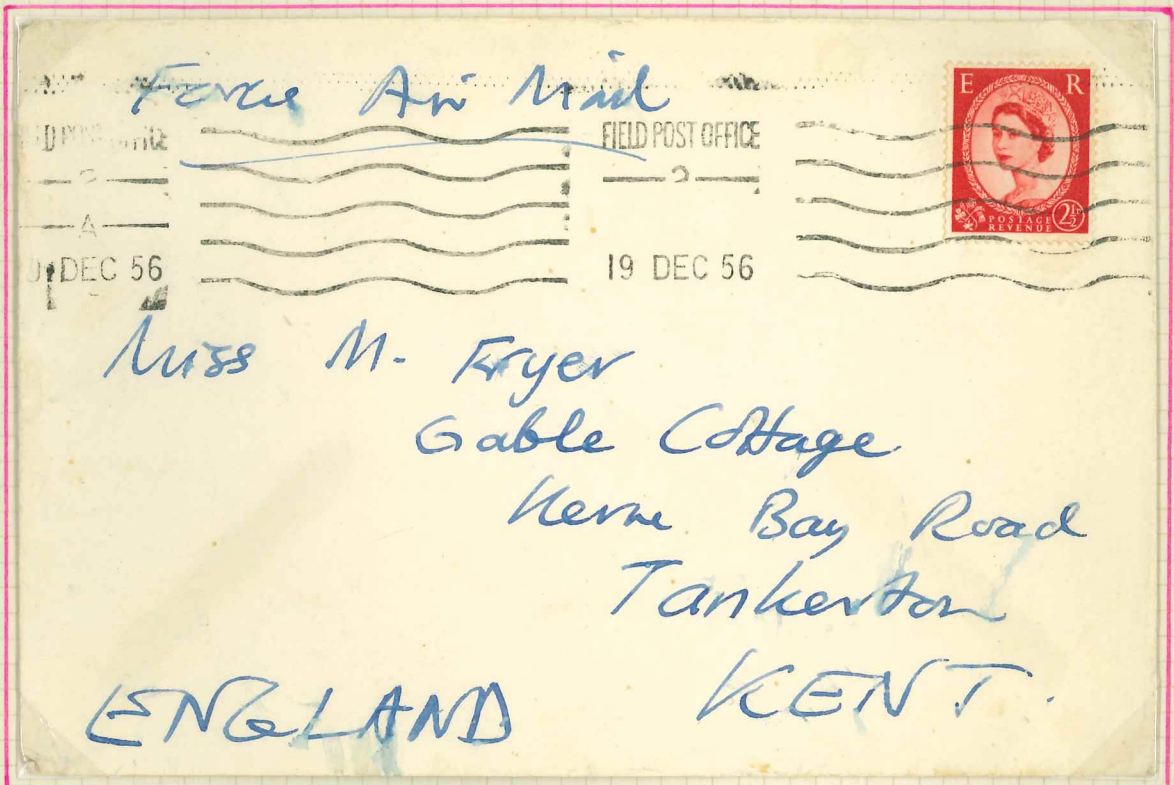 Force Air Mail
FIELD POST OFFICE
A
DEC 56
FIELD POST OFFICE
19 DEC 56
E R
POSTAGE
REVENUE
2½D
Miss M. Fryer
Gable Cottage
Herne Bay Road
Tankerton
KENT.
ENGLAND